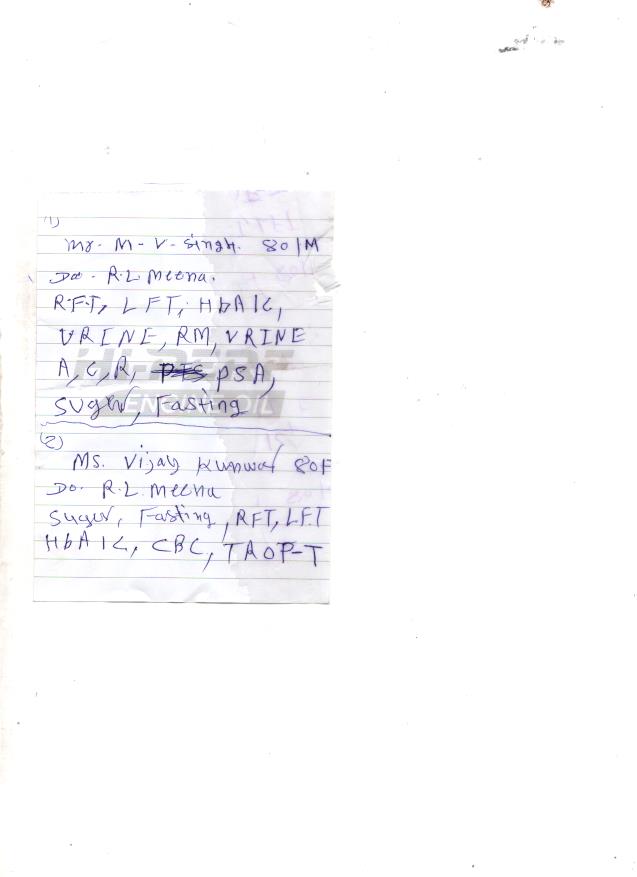 (1)
Mr. M-V-Singh. 80/M
Do. R.L. Meena.
R.F.T, LFT, HbA1C,
URINE, RM, URINE
A,C,R, PSA,
Suger, Fasting
HI-PERF
ENGINE OIL
(2)
Ms. Vijay Kunwar 80F
Do. R.L. Meena
Suger, Fasting, RFT, LFT
HbA1C, CBC, TROP-T